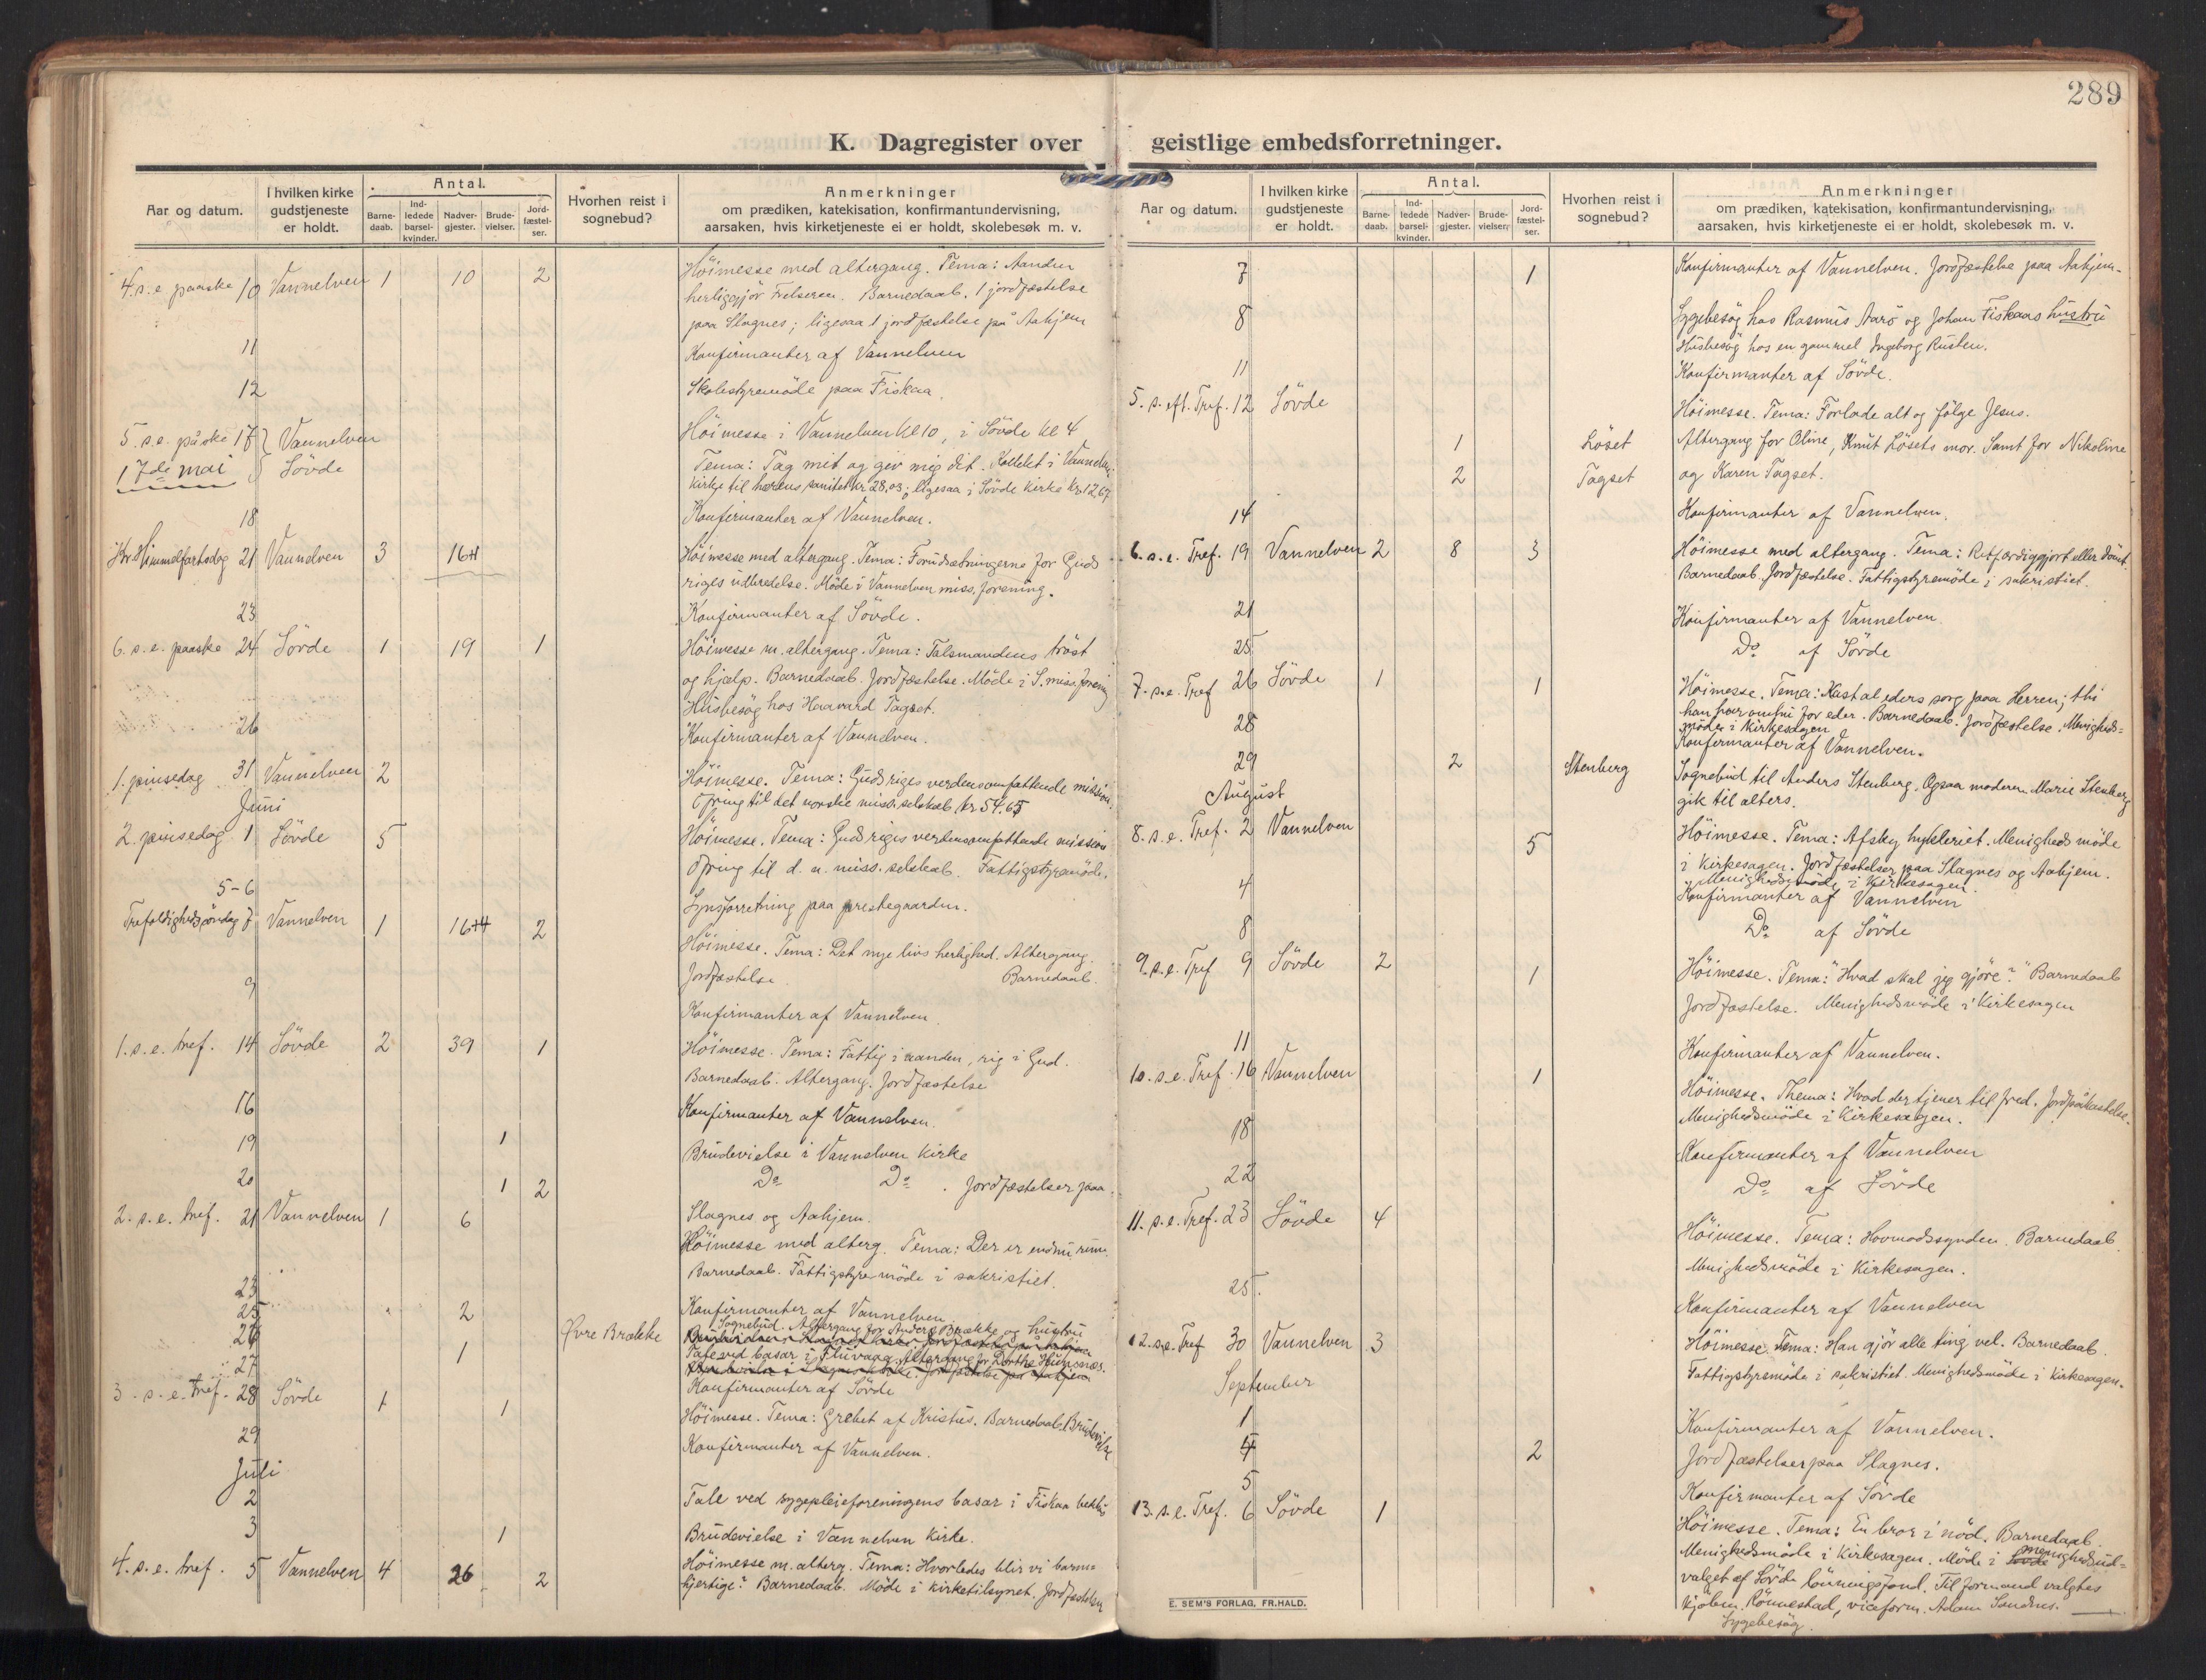 289
K. Dagregister over geistlige embedsforretninger.
Aar og datum.
I hvilken kirke gudstjeneste er holdt.
Antal.
Barne-daab.
Ind-ledede barsel-kvinder.
Nadver-gjester.
Brude-vielser.
Jord-fæstel-ser.
Hvorhen reist i sognebud?
Anmerkninger
om prædiken, katekisation, konfirmantundervisning,
aarsaken, hvis kirketjeneste ei er holdt, skolebesøk m. v.
4. s. e. paaske 10 Vannelven 1 10 2 Höimesse med altergang. Tema: Aanden
herliggjör Frelseren. Barnedaab. 1 jordfæstelse
paa Slagnes; ligesaa 1 jordfæstelse på Aahjem
11 Konfirmanter af Vannelven
12 Skolestyremöde paa Fiskaa.
5. s. e. påske 17 Vannelven Höimesse i Vannelven kl 10, i Sövde kl 4
17de mai Sövde Tema: Tag mit og giv mig dit. Kollekt i Vannelven
kirke til hærens sanitet kr 28,03; ligesaa i Sövde kirke kr. 12,67
18 Konfirmanter af Vannelven.
Kr. Himmelfartsdag 21 Vannelven 3 16+1 Höimesse med altergang. Tema: Forudsætningerne for Guds
riges udbredelse. Möde i Vannelven miss. forening.
23 Konfirmanter af Sövde.
6. s. e. paaske 24 Sörde 1 19 1 Höimesse m. altergang. Tema: Talsmandens tröst
og hjælp. Barnedaab. Jordfæstelse. Möde i S. miss. forening
Husbesög hos Haavard Tagset.
26 Konfirmanter af Vannelven.
1. pinsedag 31 Vannelven 2 Höimesse. Tema: Guds riges verdensomfattende mission.
Ofring til det norske miss. selskab kr 54.65
Juni
2. pinsedag 1 Sövde 5 Höimesse. Tema: Guds riges verdensomfattende mission
Ofring til d. n. miss. selskab. Fattigstyremöde.
5-6 Synsforretning paa prestegaarden.
Trefoldighedsöndag 7 Vannelven 1 16+4 2 Höimesse. Tema: Det nye livs herlighed. Altergang.
Jordfæstelse. Barnedaab.
9 Konfirmanter af Vannelven.
1. s. e. tref. 14 Sövde 2 39 1 Höimesse. Tema: Fattig i aanden, rig i Gud.
Barnedaab. Altergang. Jordfæstelse
16 Konfirmanter af Vannelven.
19 1 Brudevielse i Vannelven kirke
20 1 2 Do Do. Jordfæstelser paa
Slagnes og Aahjem.
2. s. e. tref. 21 Vannelven 1 6 Höimesse med alterg. Tema: Der er endnu rum.
Barnedaab. Fattigstyremöde i sakristiet.
23 Konfirmanter af Vannelven
25 2 Övre Brække Sognebud. Altergang for Anders Brække og hustru
26 1 Tale ved basar i Fluvaag. Altergang for Dorthe Hunsnes.
27 Konfirmanter af Sövde
3. s. e. tref. 28 Sövde 1 1 Höimesse. Tema: Grebet af Kristus. Barnedaab. Brudevielse
29 Konfirmanter af Vannelven.
Juli
2 Tale ved sygepleieforeningens basar i Fiskaa
3 1 Brudevielse i Vannelven kirke.
4. s. e. tref. 5 Vannelven 4 26 2 Höimesse m. alterg. Tema: Hvorledes blir vi barm=
hjertige? Barnedaab. Möde i kirketilsynet. Jordfæstelser
Aar og datum.
I hvilken kirke gudstjeneste er holdt.
Antal.
Barne-daab.
Ind-ledede barsel-kvinder.
Nadver-gjester.
Brude-vielser.
Jord-fæstel-ser.
Hvorhen reist i sognebud?
Anmerkninger
om prædiken, katekisation, konfirmantundervisning,
aarsaken, hvis kirketjeneste ei er holdt, skolebesøk m. v.
7 1 Konfirmanter af Vannelven. Jordfæstelse paa Aahjem.
8 Sygebesög hos Rasmus Aarö og Johan Fiskaas hustru
Husbesög hos en gammel Ingeborg Rusten.
11 Konfirmanter af Sövde.
5. s. eft. Tref. 12 Sövde Höimesse. Tema: Forlade alt og fölge Jesus.
1 Löset Altergang for Oline, Knut Lösets mor. Samt for Nikoline
2 Tagset og Karen Tagset.
14 Konfirmanter af Vannelven.
6. s. e. Tref. 19 Vannelven 2 8 3 Höimesse med altergang. Tema: Retfærdiggjort eller dömt.
Barnedaab. Jordfæstelse. Fattigstyremöde i sakristiet.
21 Konfirmanter af Vannelven.
25 Do af Sövde
7. s. e. Tref 26 Sövde 1 1 Höimesse. Tema: Kast al eders sorg paa Herren; thi
han har omhu for eder. Barnedaab. Jordfæstelse. Menigheds=
möde i Kirkesagen
28 Konfirmanter af Vannelven.
29 2 Stenberg Sognebud til Anders Stenberg. Ogsaa moderen Marie Stenberg
gik til alters.
August
8. s. e. Tref. 2 Vannelven 5 Höimesse. Tema: Afsky hykleriet. Menighedsmöde
i Kirkesagen. Jordfæstelser paa Slagnes og Aahjem.
Menighedsmöde i Kirkesagen.
4 Konfirmanter af Vannelven
8 Do af Sövde
9. s. e. Tref 9 Sövde 2 1 Höimesse. Tema: "Hvad skal jeg gjöre?" Barnedaab
Jordfæstelse. Menighedsmöde i Kirkesagen
11 Konfirmanter af Vannelven.
10. s. e. Tref. 16 Vannelven 1 Höimesse. Thema: Hvad der tjener til fred. Jordpåkastelse.
Menighedsmöde i Kirkesagen.
18 Konfirmanter af Vannelven
22 Do af Sövde
11. s. e. Tref. 23 Sövde 4 Höimesse. Tema: Hovmodssynden. Barnedaab.
Menighedsmöde i Kirkesagen.
25. Konfirmanter af Vannelven
12. s. e. Tref 30 Vannelven 3 Höimesse. Tema: Han gjör alle ting vel. Barnedaab.
Fattigstyremöde i sakristiet. Menighedsmöde i kirkesagen.
September
1 Konfirmanter af Vannelven.
4 2 Jordfæstelser paa Slagnes.
5 Konfirmanter af Sövde
13. s. e. Tref. 6 Sövde 1 Höimesse. Tema: En bror i nöd. Barnedaab.
Menighedsmöde i Kirkesagen. Möde i menighedsud=
valget af Sövde lönningsfond. Til formand valgtes
Rönnestad, viceform. Adam Sandnes.
Sygebesög.
E. SEM'S FORLAG, FR.HALD.